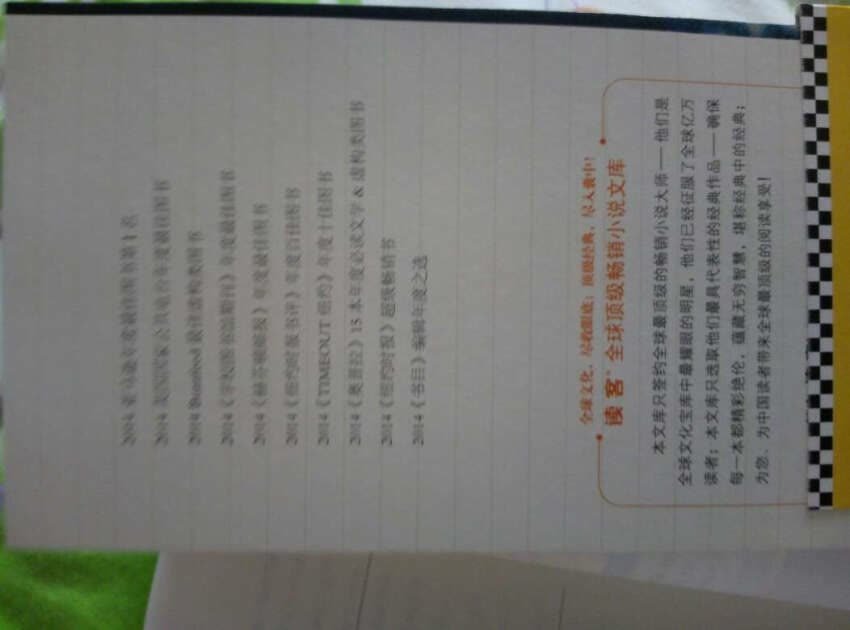 2014 亚马逊年度最佳图书第 1 名
2014 美国国家公共电台年度最佳图书
2014 Buzzfeed 最佳虚构类图书
2014《学校图书馆期刊》年度最佳图书
2014《赫芬顿邮报》年度最佳图书
2014《纽约时报书评》年度百佳图书
2014《TIMEOUT 纽约》年度十佳图书
2014《奥普拉》15 本年度必读文学 & 虚构类图书
2014《纽约时报》超级畅销书
2014《书目》编辑年度之选
全球文化，尽收眼底；顶级经典，尽入囊中！
读客 全球顶级畅销小说文库
本文库只签约全球最顶级的畅销小说大师——他们是
全球文化宝库中最耀眼的明星，他们已经征服了全球亿万
读者；本文库只选取他们最具代表性的经典作品——确保
每一本都精彩绝伦，蕴藏无穷智慧，堪称经典中的经典；
为您、为中国读者带来全球最顶级的阅读享受！